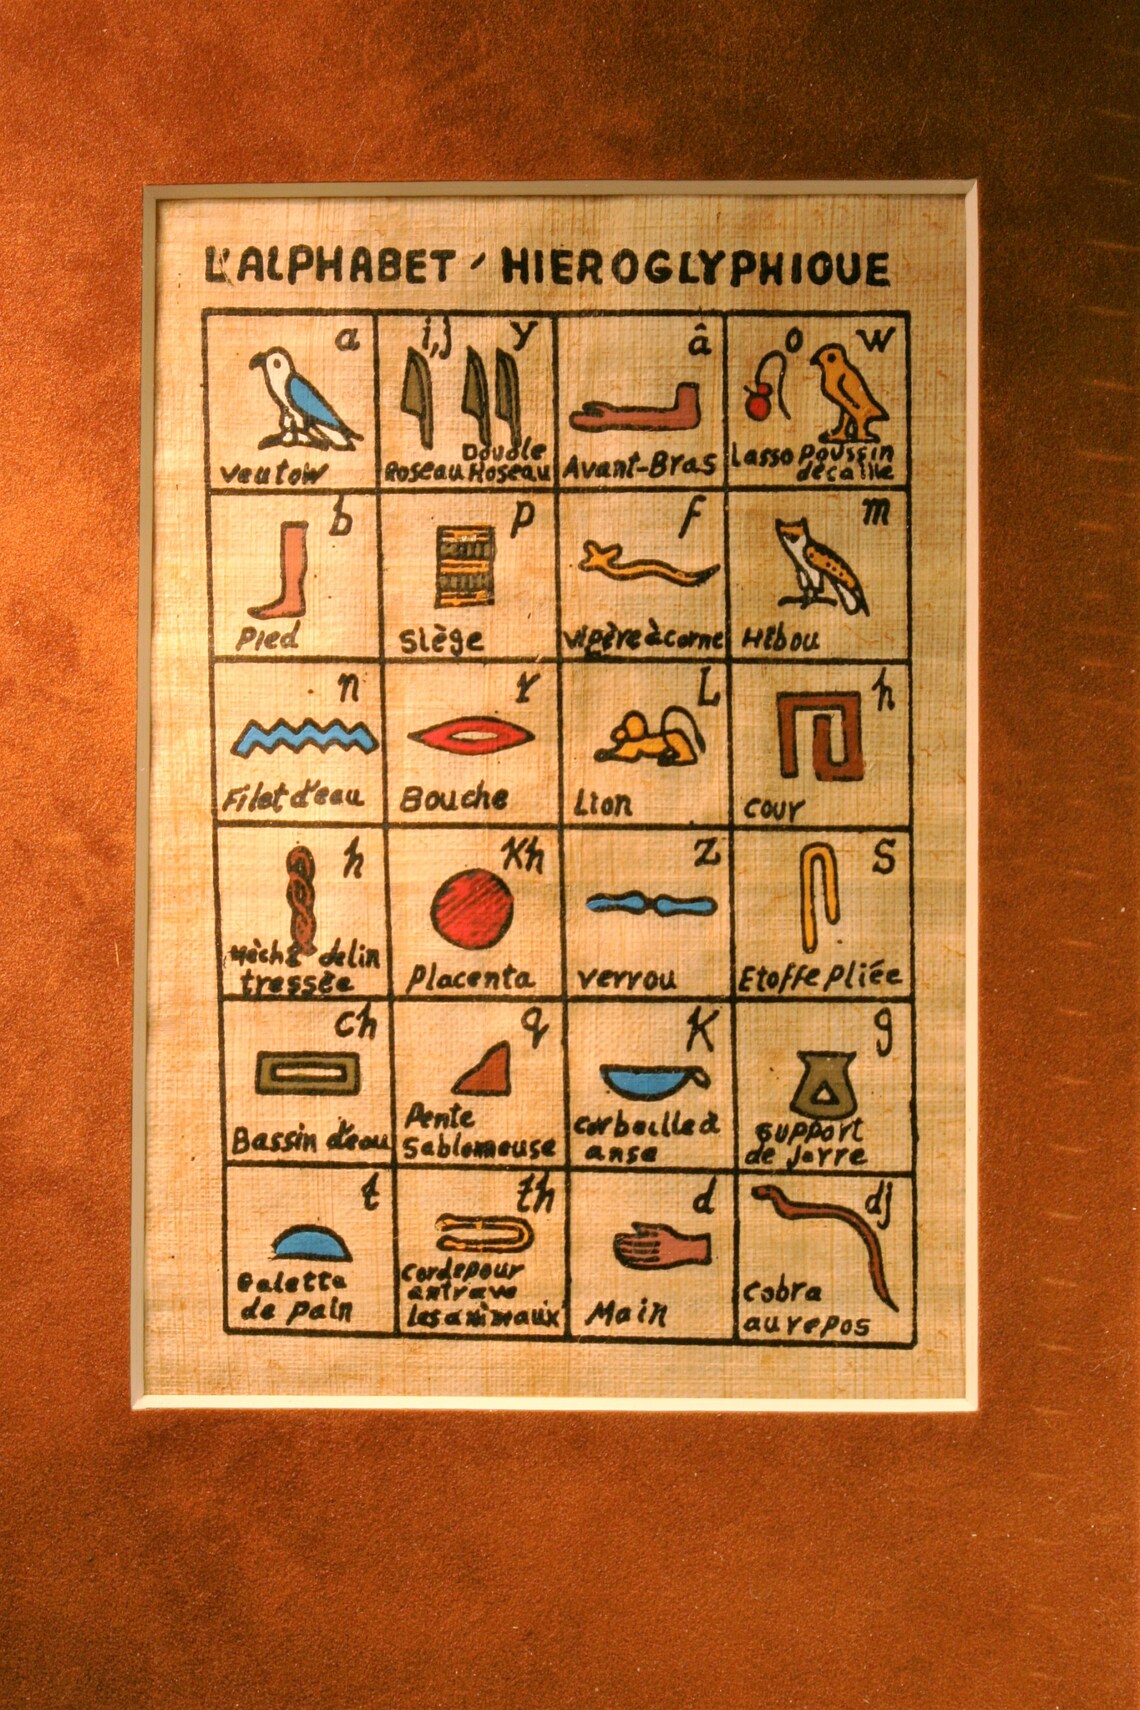 L'ALPHABET ' HIEROGLYPHIQUE
a
i,j y
â
o w
Vautow
Roseau Double Roseau
Avant-Bras
Lasso Poussin
de caille
b
p
f
m
Pied
Siège
Vipère à corne
Hibou
n
r
L
h
Filet d'eau
Bouche
Lion
cour
h
kh
z
S
Mèche de lin
tressée
Placenta
verrou
Etoffe Pliée
ch
q
K
g
Bassin d'eau
Pente
Sablomeuse
corbeille à
anse
support
de Jarre
t
th
d
dj
Galette
de pain
Corde pour
entrave
les animaux
Main
Cobra
au repos